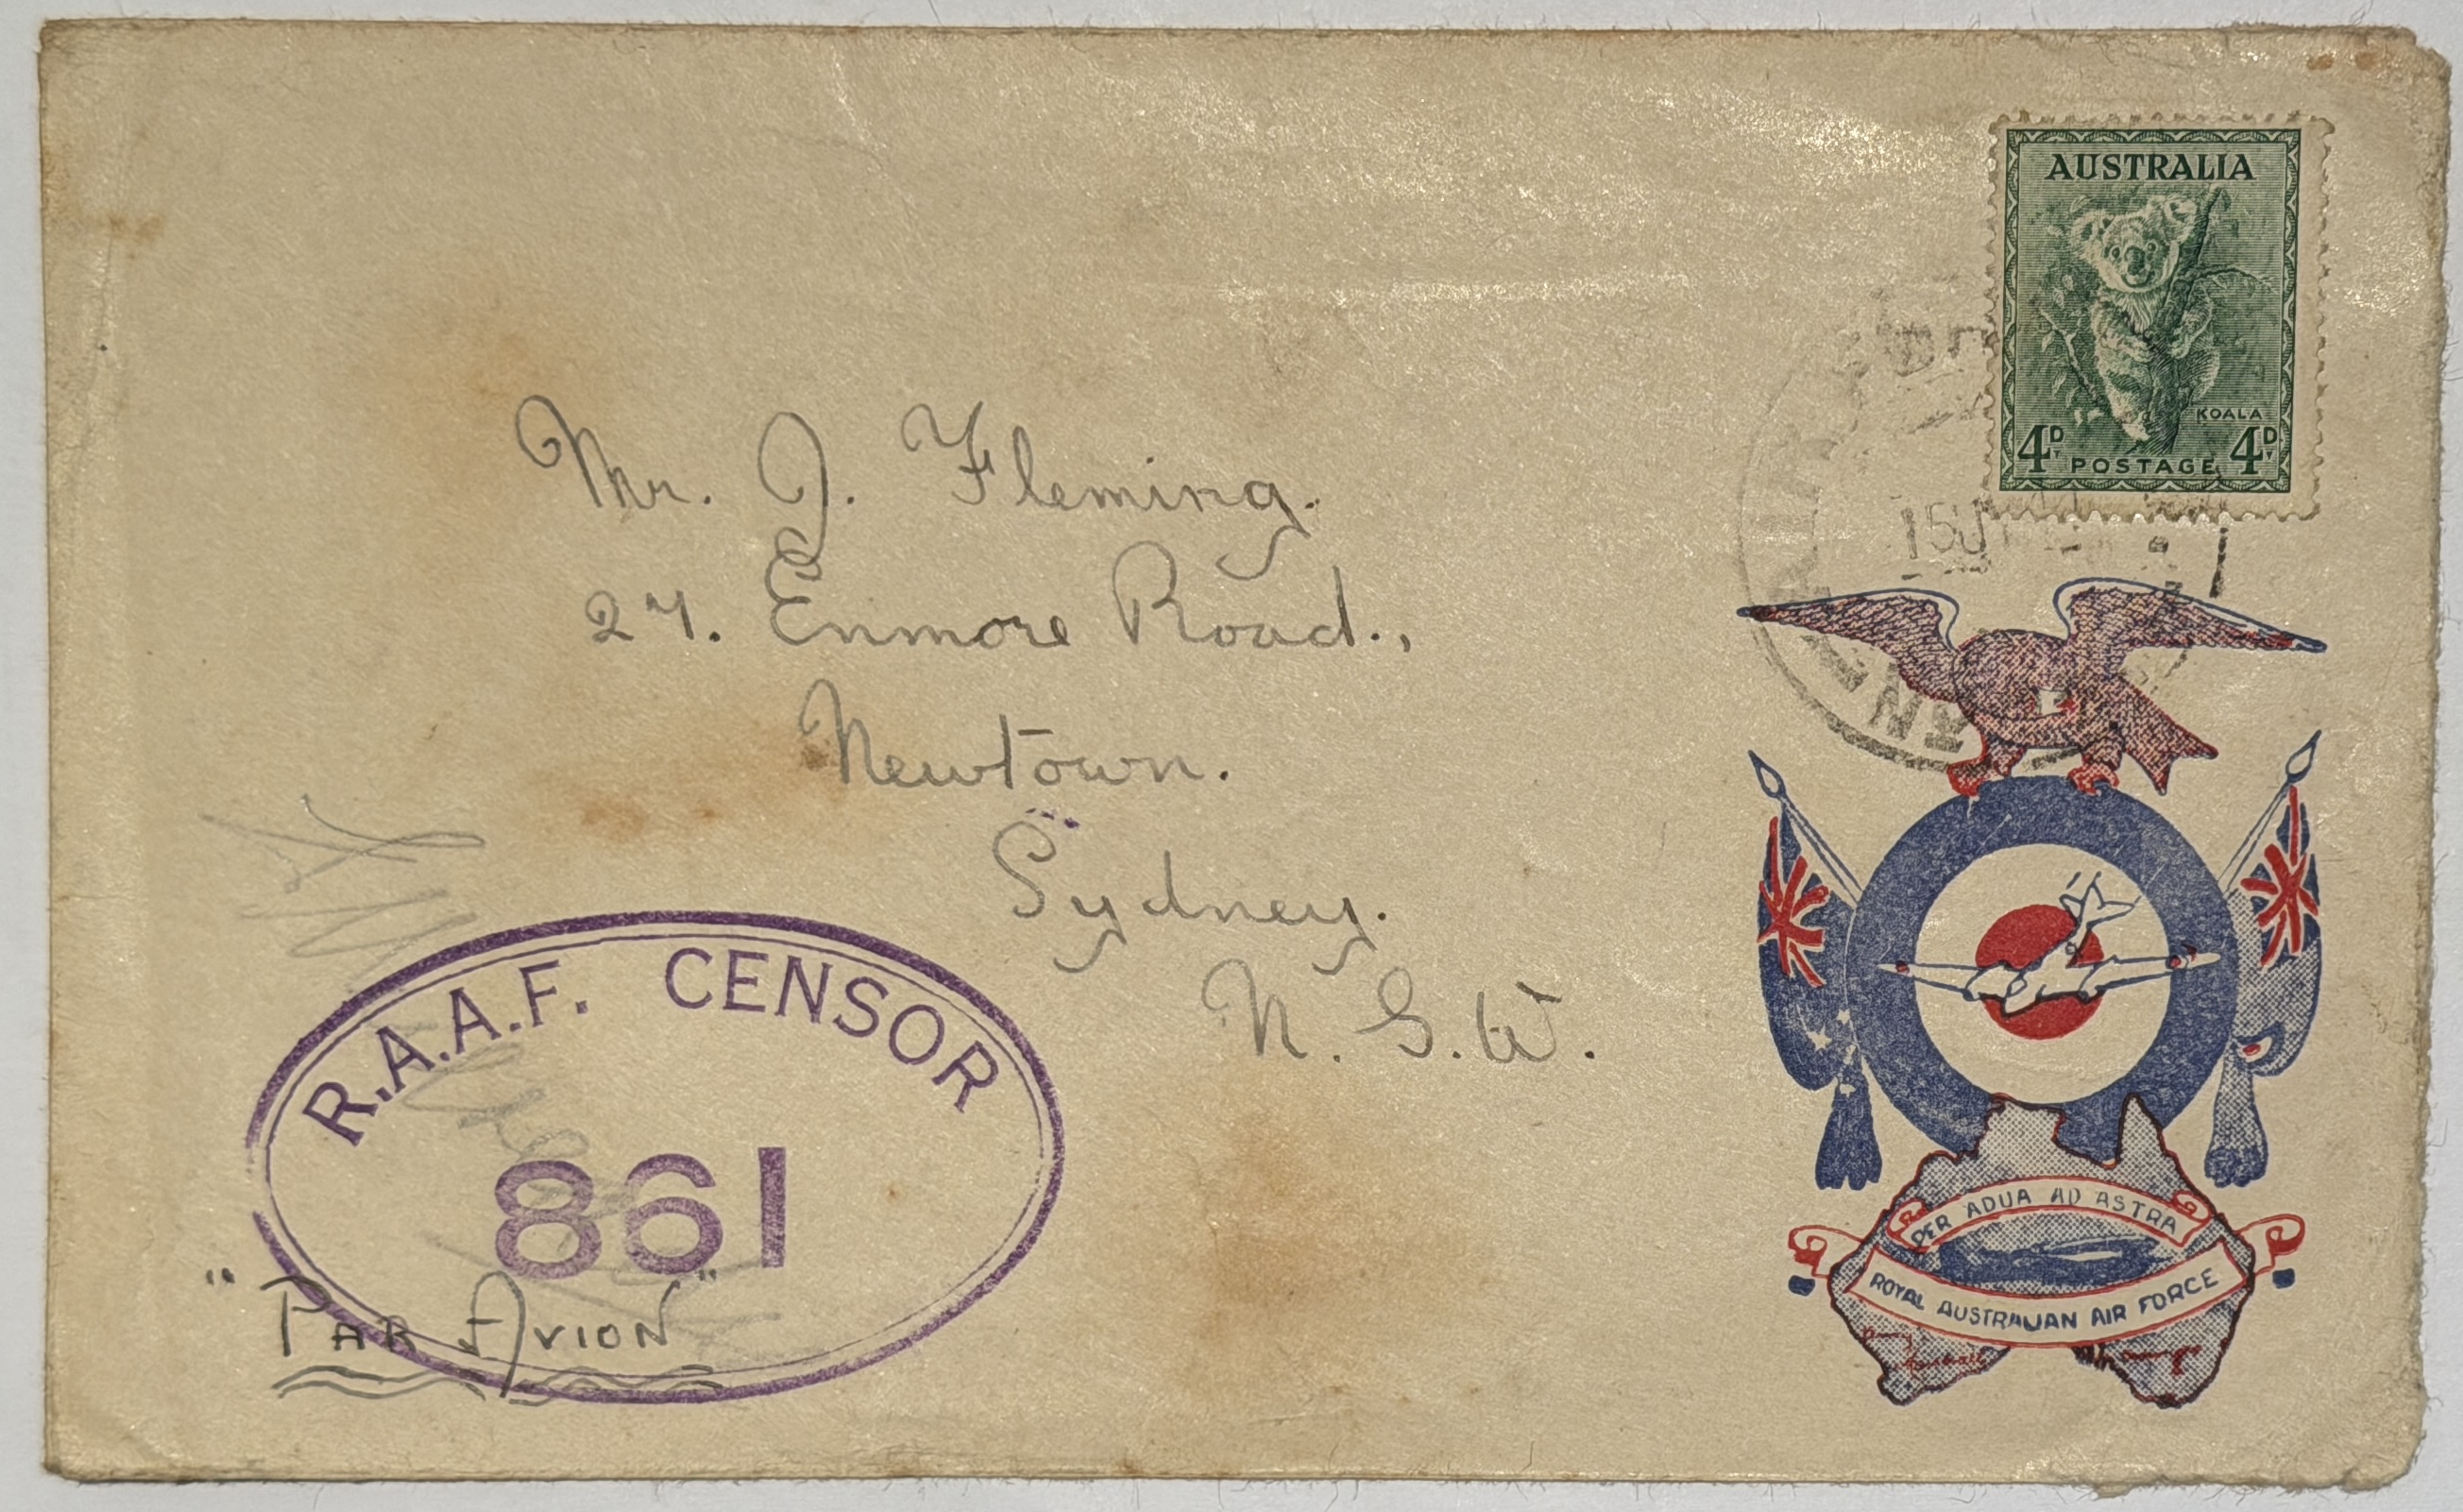 AUSTRALIA
KOALA
4D POSTAGE 4D
Mr. J. Fleming.
27. Enmore Road.,
Newtown.
Sydney.
N. S. W.
R.A.A.F. CENSOR
861
"PAR AVION"
PER ADUA AD ASTRA
ROYAL AUSTRALIAN AIR FORCE